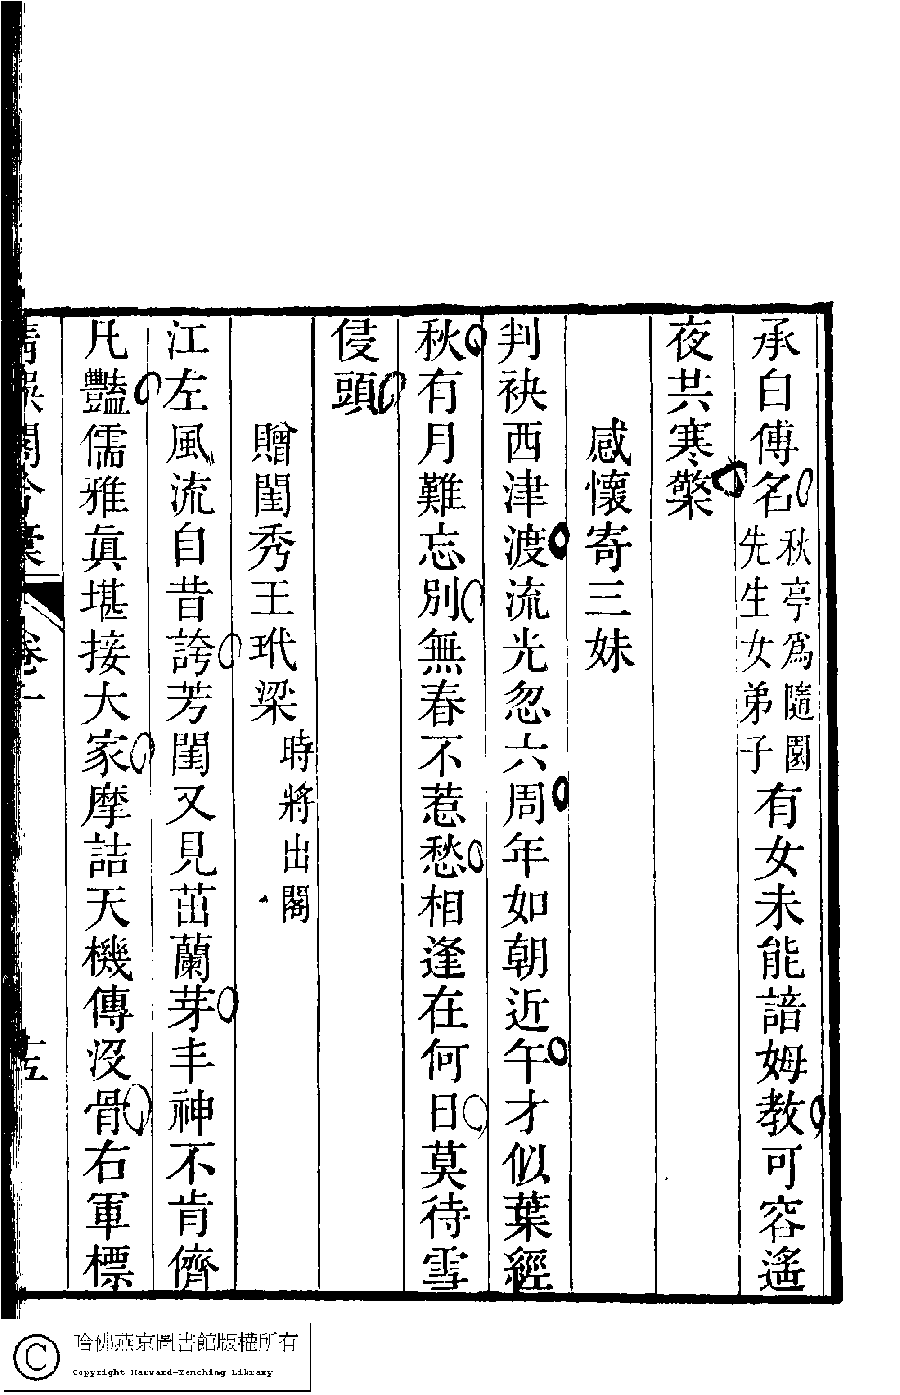 承白傅名秋亭爲隨園先生女弟子有女未能諳姆教可容遙
夜共寒檠
感懷寄三妹
判袂西津渡流光忽六周年如朝近午才似葉經
秋有月難忘別無春不惹愁相逢在何日莫待雪
侵頭
贈閨秀王玳梁時將出閣
江左風流自昔誇芳閨又見茁蘭芽丰神不肯儕
凡豔儒雅眞堪接大家摩詰天機傳沒骨右軍標
哈佛燕京圖書館版權所有
Copyright Harvard-Yenching Library